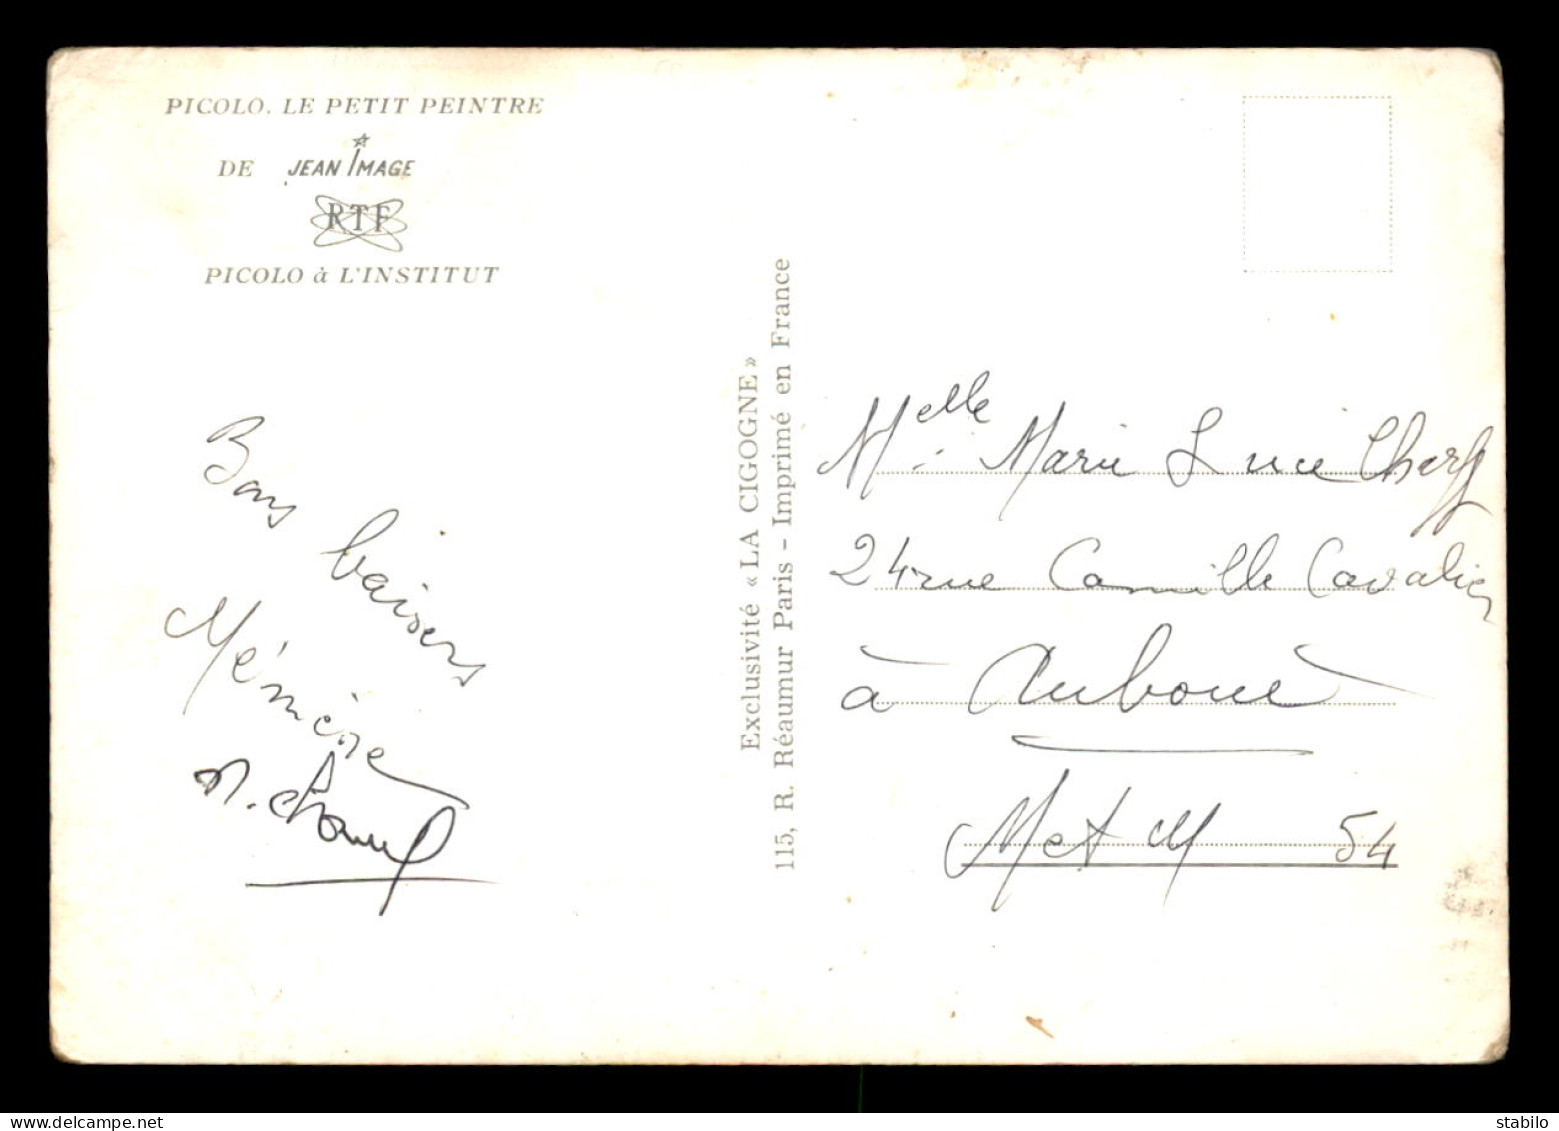 PICOLO. LE PETIT PEINTRE
DE JEAN IMAGE
RTF
PICOLO à L'INSTITUT
Bons baisers
Mémère
Exclusivité « LA CIGOGNE »
115, R. Réaumur Paris - Imprimé en France
Melle Marie Lucie
24 rue Camille Cavalier
à Auboué
Met M 54
stabilo